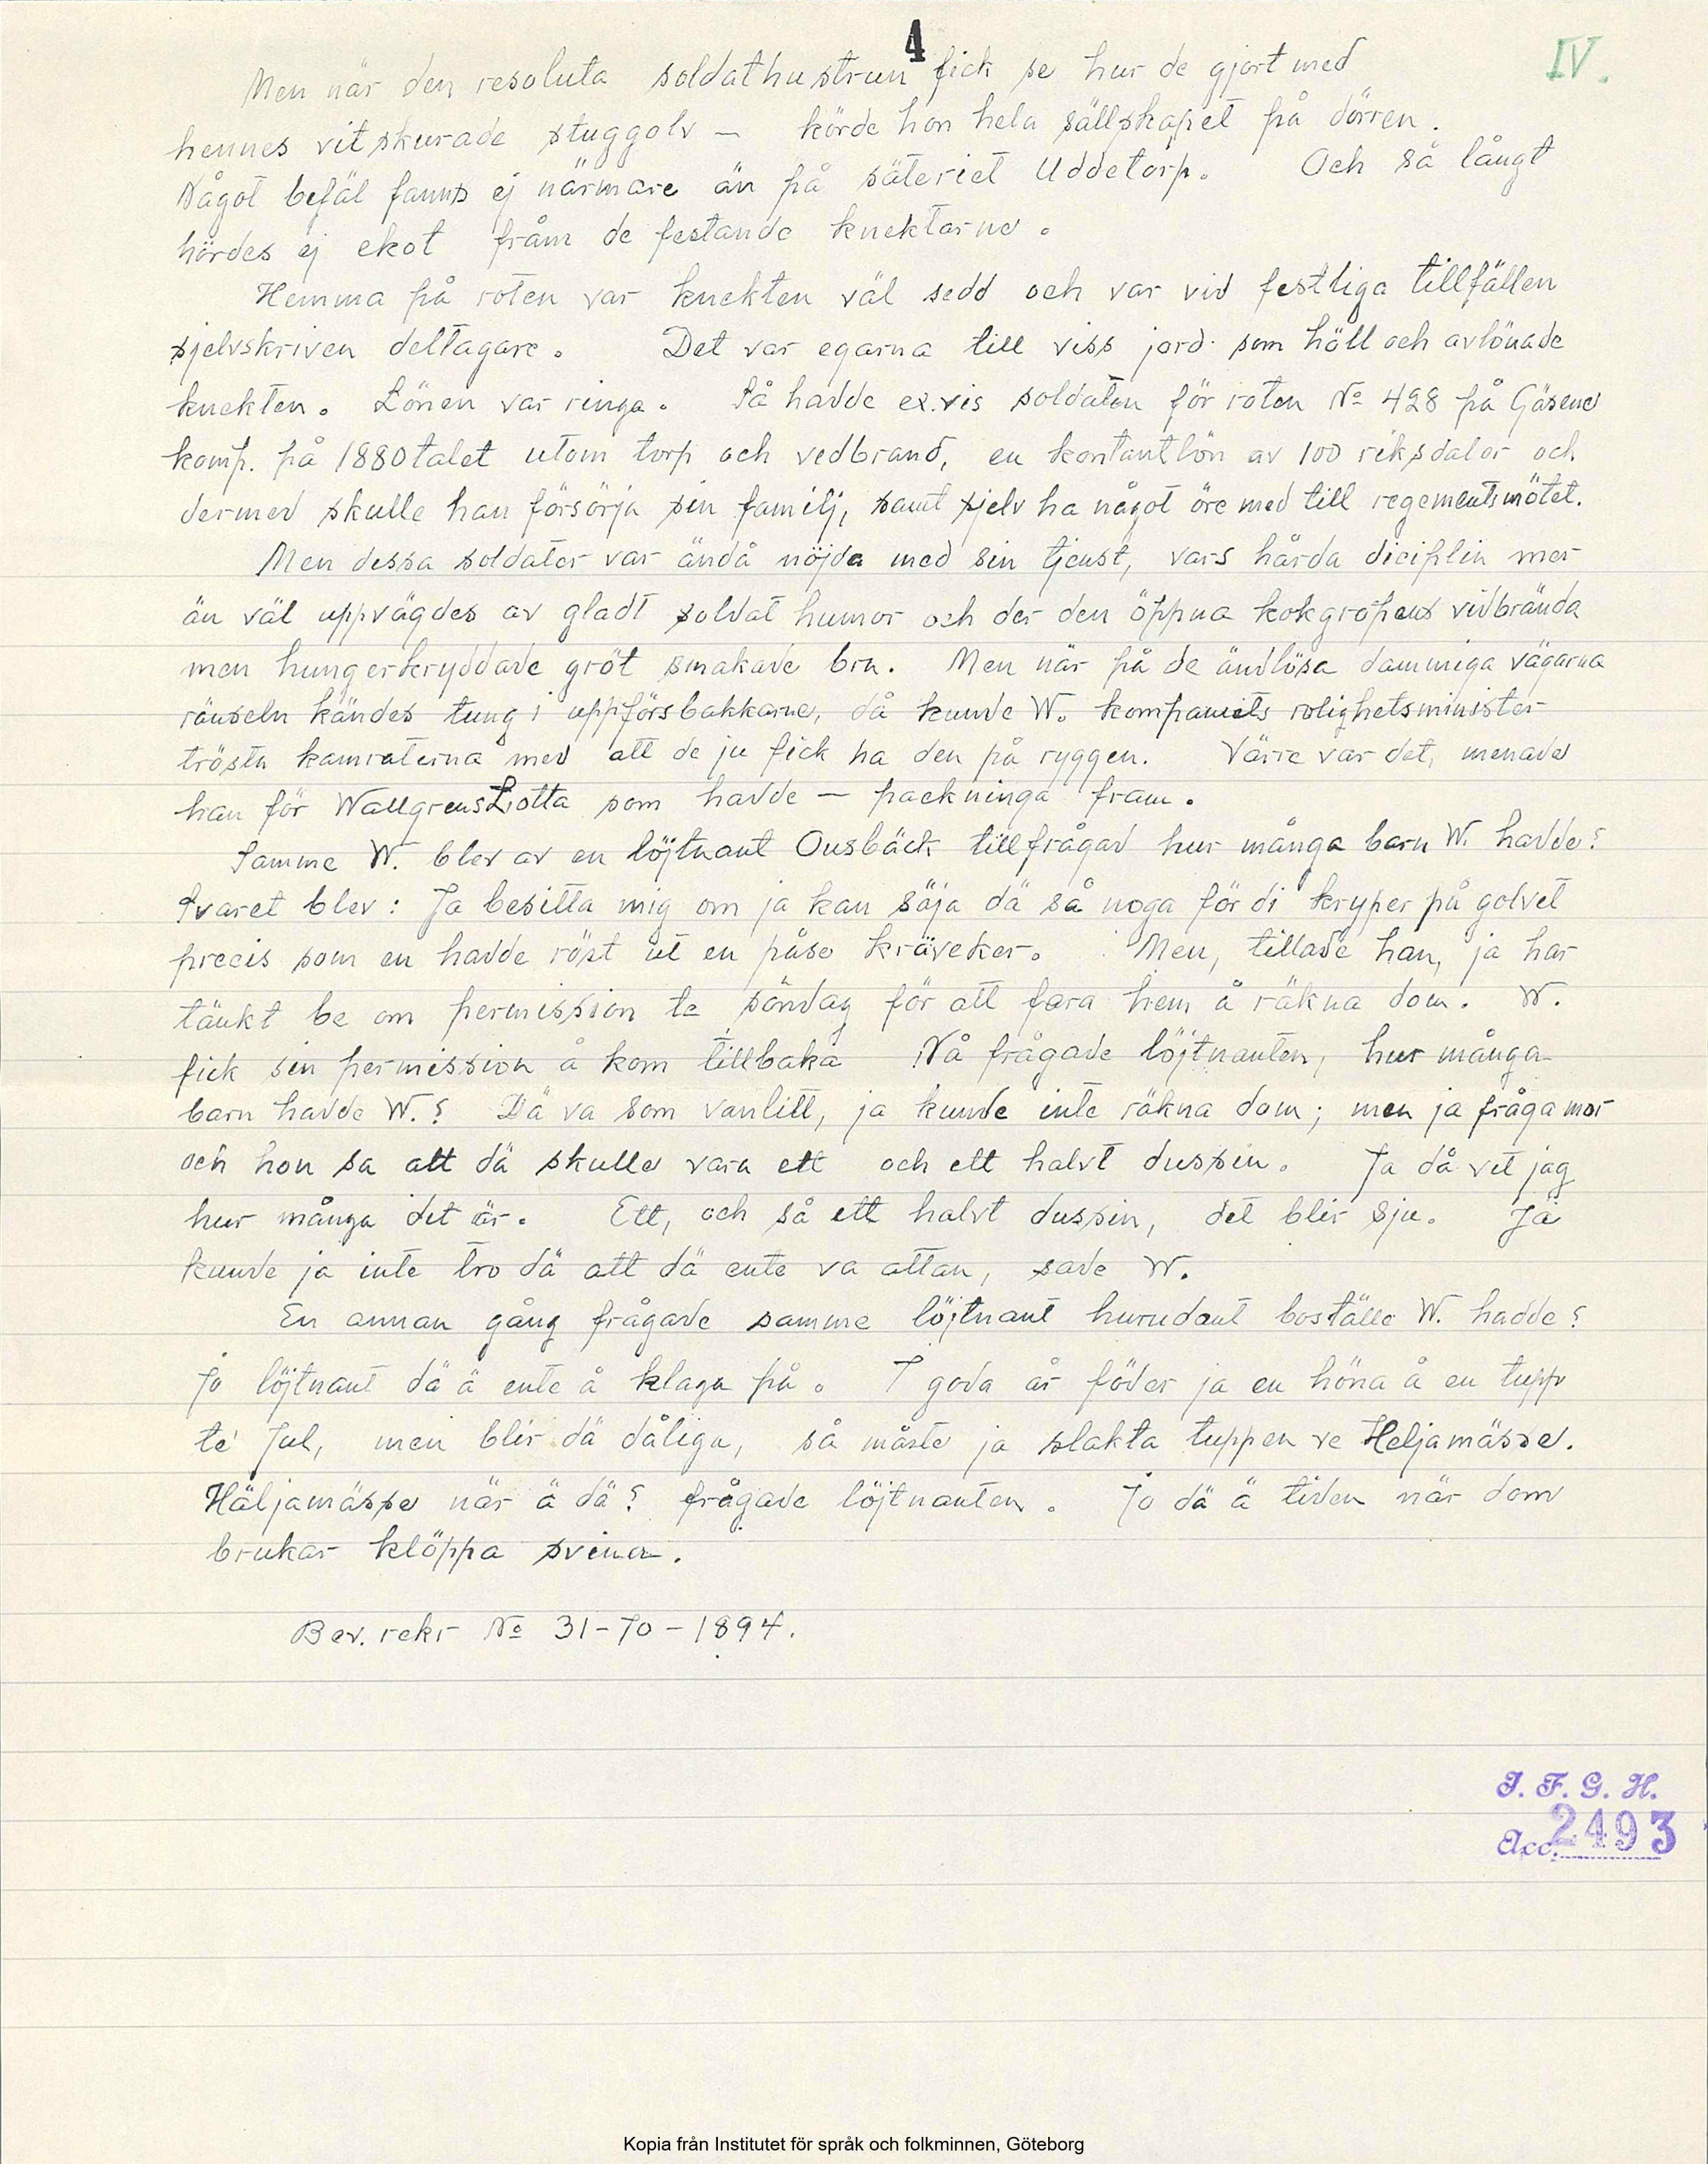 4
IV.
Men när den resoluta soldathustrun fick se hur de gjort med
hennes vitskurade stuggolv — körde hon hela sällskapet på dörren.
Något befäl fanns ej närmare än på säteriet Uddetorp. Och så långt
hördes ej ekot från de festande knektarne.
Hemma på roten var knekten väl sedd och var vid festliga tillfällen
sjelvskriven deltagare. Det var egarna till viss jord som höll och avlönade
knekten. Lönen var ringa. Så hadde ex.vis soldaten för roten No 428 på Gäsene
komp. på 1880talet utom torp och vedbrand, en kontantlön av 100 riksdaler och
dermed skulle han försörja sin familj, samt sjelv ha något öre med till regementsmötet.
Men dessa soldater var ändå nöjda med sin tjenst, vars hårda diciplin mer
än väl uppvägdes av gladt soldat humor och der den öppna kokgropens vidbrända
men hungerkryddade gröt smakade bra. Men när på de ändlösa dammiga vägarna
ränseln kändes tung i uppförsbakkarne, då kunde W. kompaniets rolighetsminister
trösta kamraterna med att de ju fick ha den på ryggen. Värre var det, menade
han för Wallgrens Lotta som hadde — packninga fram.
Samme W. blev av en löjtnant Ousbäck tillfrågad hur många barn W. hadde?
Svaret blev: Ja besitta mig om ja kan säja dä så noga för di kryper på golvet
precis som en hadde röst ut en påse kräveker. Men, tillade han, ja har
tänkt be om permission te söndag för att fara hem å räkna dom. W.
fick sin permission å kom tillbaka Nå frågade löjtnanten, hur många
barn hadde W.? Dä va som vanlitt, ja kunde inte räkna dom; men ja fråga mor
och hon sa att dä skulle vara ett och ett halvt dussin. Ja då vet jag
hur många det är. Ett, och så ett halvt dussin, det blir sju. Ja
kunde ja inte tro dä att dä ente va attan, sade W.
En annan gång frågade samme löjtnant hurudant boställe W. hadde?
Jo löjtnant dä ä ente å klaga på. I goda år föder ja en höna å en tupp
te' Jul, men blir dä dåliga, så måste ja slakta tuppen ve Heljamässe.
Häljamässe när ä dä? frågade löjtnanten. Jo dä ä tiden när dom
brukar klöppa svina.
Bev. rekr No 31-70-1894.
I. F. G. H.
Acc. 2493
Kopia från Institutet för språk och folkminnen, Göteborg